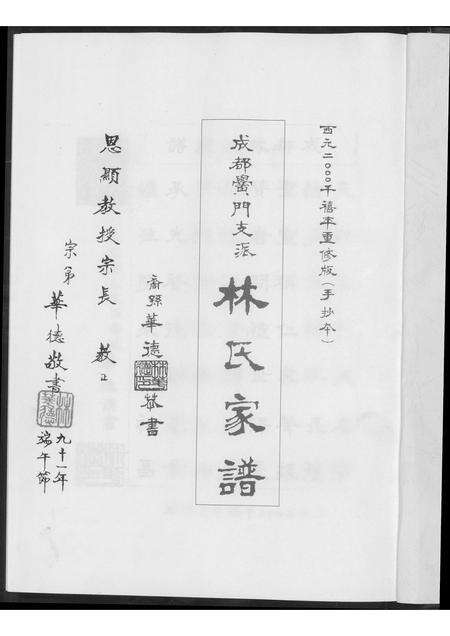 西元二〇〇〇千禧年重修版(手抄本)
成都黌門支派
林氏家譜
裔孫華德恭書
恩顯教授宗長 教正
宗弟 華德敬書
九十一年
端午節